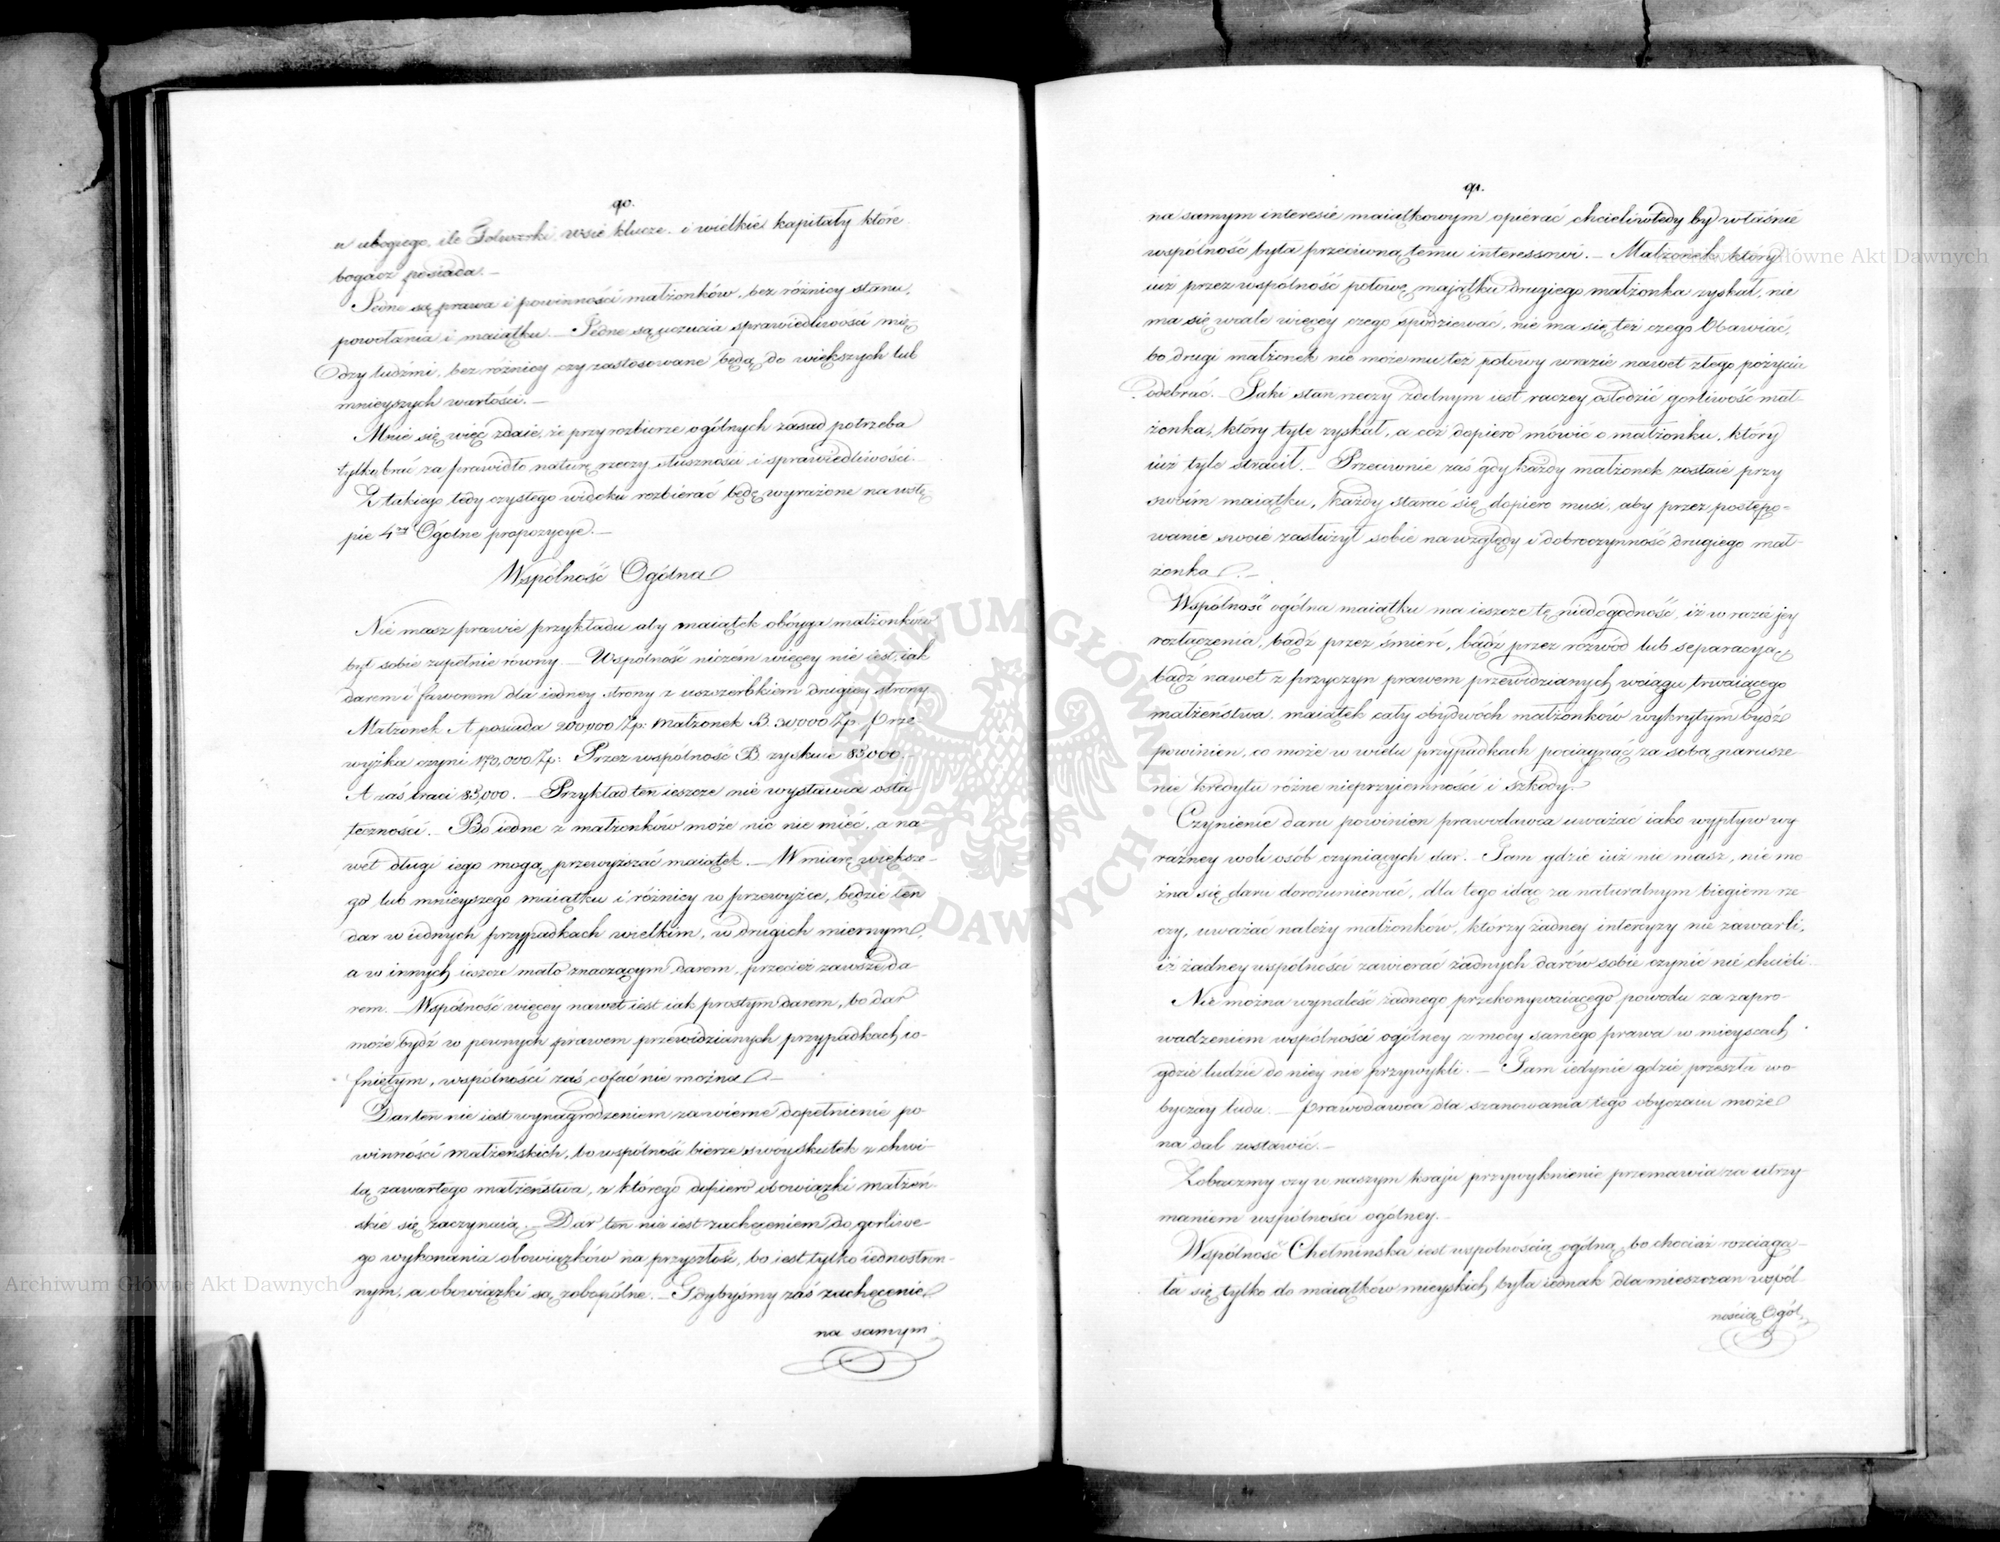 90.
u ubogiego, ile Folwarki, wsie klucze, i wielkie kapitały które
bogacz posiada. —
Jedne są prawa i powinności małżonków, bez różnicy stanu,
powołania i maiątku. — Jedne są uczucia sprawiedliwości mię-
dzy ludźmi, bez różnicy czy zastosowane będą do większych lub
mnieyszych wartości. —
Mnie się więc zdaie, że przy rozbiorze ogólnych zasad potrzeba
tylko brać za prawidło naturę rzeczy słuszności i sprawiedliwości. —
Z takiego tedy czystego widoku rozbierać będę wyrażone na wstę
pie 4ry Ogólne propozycye. —
Wspólność Ogólna
Nie masz prawie przykładu aby maiątek obóyga małżonków
był sobie zupełnie równy. — Wspólność niczém więcey nie iest, iak
darem i faworem dla iedney strony z uszczerbkiem drugiey strony.
Małżonek A posiada 200,000 Zp: Małżonek B. 30,000 Zp. Prze
wyżka czyni 170,000 Zp: Przez wspólność B. zyskuie 85,000.
A zaś traci 85,000. — Przykład ten ieszcze nie wystawia osta
teczności. — Bo iedne z małżonków może nic nie mieć, a na-
wet długi iego mogą przewyższać maiątek. — W miarę większe-
go lub mnieyszego maiątku i różnicy w przewyżce, będzie ten
dar w iednych przypadkach wielkim, w drugich miernym,
a w innych ieszcze mało znaczącym darem, przecież zawsze da
rem. — Wspólność więcey nawet iest iak prostym darem, bo dar
może bydź w pewnych prawem przewidzianych przypadkach co-
fniętym, wspólności zaś cofać nie można. —
Dar ten nie iest wynagrodzeniem za wierne dopełnienie po-
winności małżeńskich, bo wspólność bierze swóy skutek z chwi-
lą zawartego małżeństwa, z którego dopiero obowiązki małżeń-
skie się zaczynaią. — Dar ten nie iest zachęceniem do gorliwe-
go wykonania obowiązków na przyszłość, bo iest tylko iednostron-
nym, a obowiązki są zobopólne. — Gdybyśmy zaś zachęcenie
na samym
91.
na samym interesie maiątkowym opiérać chcieli wtedy by właśnie
wspólność była przeciwną temu interessowi. — Małżonek który
iuż przez wspólność połowę maiątku drugiego małżonka zyskał, nie
ma się wcale więcey czego spodziewać, nie ma się też czego obawiać,
bo drugi małżonek nie może mu też połowy w razie nawet złego pożycia
odebrać. — Taki stan rzeczy zdolnym iest raczey osłodzić gorliwość mał-
żonka, który tyle zyskał, a cóż dopiero mówić o małżonku, który
iuż tyle stracił. — Przeciwnie zaś gdy każdy małżonek zostaie przy
swoim maiątku, każdy starać się dopiero musi, aby przez postępo-
wanie swoie zasłużył sobie na względy i dobroczynność drugiego mał-
żonka. —
Wspólność ogólna maiątku ma ieszcze tę niedogodność, iż w razie jey
rozłączenia, bądź przez śmierć, bądź przez rozwód lub separacyą,
bądź nawet z przyczyn prawem przewidzianych w ciągu trwaiącego
małżeństwa, maiątek cały obydwóch małżonków wykrytym bydź
powinien, co może w wielu przypadkach pociągnąć za sobą narusze
nie kredytu różne nieprzyiemności i szkody.
Czynienie daru powinien prawodawca uważać iako wypływ wy
raźney woli osób czyniących dar. — Tam gdzie iuż nie masz, nie mo
żna się daru dorozumiewać, dla tego idąc za naturalnym biegiem rze
czy, uważać należy małżonków, którzy żadney intercyzy nie zawarli,
iż żadney wspólności zawierać żadnych darów sobie czynić nie chcieli. —
Nie można wynaleść żadnego przekonywaiącego powodu za zapro-
wadzeniem wspólności ogólney z mocy samego prawa w mieyscach
gdzie ludzie do niey nie przywykli. — Tam iedynie gdzie przeszła w o-
byczay ludu. — prawodawca dla szanowania tego obyczaiu może
na dal zostawić. —
Zobaczmy czy w naszym kraju przywyknienie przemawia za utrzy-
maniem wspólności ogólney. —
Wspólność Chełmińska iest wspólnością ogólną, bo chociaż rozciąga-
ła się tylko do maiątków mieyskich, była iednak dla mieszczan wspól
nością Ogól
Archiwum Główne Akt Dawnych
Archiwum Główne Akt Dawnych
ARCHIWUM GŁÓWNE · AKT DAWNYCH ·